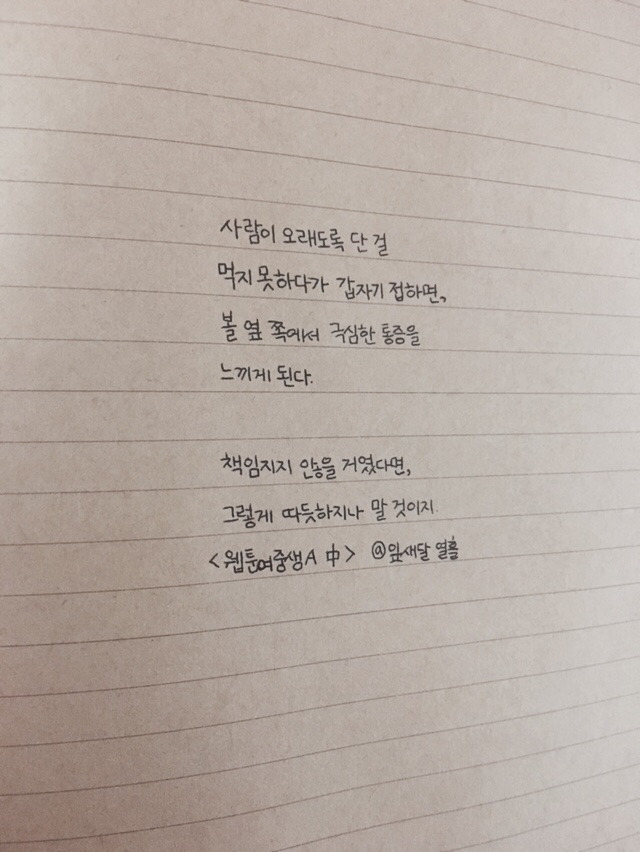 사람이 오래도록 단 걸
먹지 못하다가 갑자기 접하면,
볼 옆 쪽에서 극심한 통증을
느끼게 된다.
책임지지 않을 거였다면,
그렇게 따듯하지나 말 것이지.
<웹툰여중생A 中> @앞새달 열흘